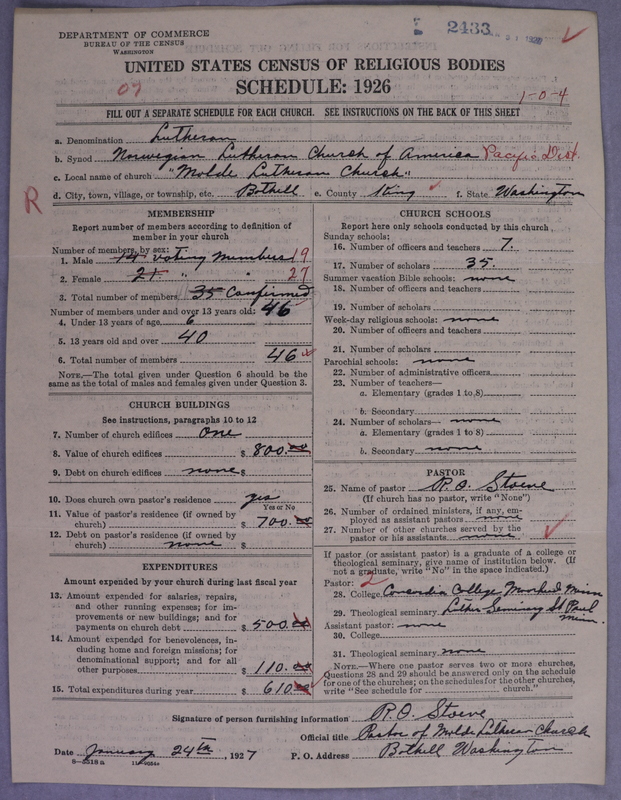 DEPARTMENT OF COMMERCE
BUREAU OF THE CENSUS
WASHINGTON
2433
UNITED STATES CENSUS OF RELIGIOUS BODIES
SCHEDULE: 1926
07
1-0-4
FILL OUT A SEPARATE SCHEDULE FOR EACH CHURCH. SEE INSTRUCTIONS ON THE BACK OF THIS SHEET
a. Denomination Lutheran
b. Synod Norwegian Lutheran Church of America Pacific Dist.
c. Local name of church "Molde Lutheran Church"
d. City, town, village, or township, etc. Bothell e. County King f. State Washington
R
MEMBERSHIP
Report number of members according to definition of member in your church
Number of members, by sex:
1. Male 14 voting members 19
2. Female 21 " " 27
3. Total number of members 35 Confirmed
Number of members under and over 13 years old: 46
4. Under 13 years of age 6
5. 13 years old and over 40
6. Total number of members 46
NOTE.—The total given under Question 6 should be the same as the total of males and females given under Question 3.
CHURCH BUILDINGS
See instructions, paragraphs 10 to 12
7. Number of church edifices One
8. Value of church edifices $ 800.00
9. Debt on church edifices none $
10. Does church own pastor's residence yes
Yes or No
11. Value of pastor's residence (if owned by church) $ 700.00
12. Debt on pastor's residence (if owned by church) none $
EXPENDITURES
Amount expended by your church during last fiscal year
13. Amount expended for salaries, repairs, and other running expenses; for improvements or new buildings; and for payments on church debt $ 500.00
14. Amount expended for benevolences, including home and foreign missions; for denominational support; and for all other purposes $ 110.00
15. Total expenditures during year $ 610.00
CHURCH SCHOOLS
Report here only schools conducted by this church
Sunday schools:
16. Number of officers and teachers 7.
17. Number of scholars 35.
Summer vacation Bible schools: none
18. Number of officers and teachers
19. Number of scholars
Week-day religious schools: none
20. Number of officers and teachers
21. Number of scholars
Parochial schools: none
22. Number of administrative officers
23. Number of teachers—
a. Elementary (grades 1 to 8)
b. Secondary
24. Number of scholars— none
a. Elementary (grades 1 to 8)
b. Secondary none
PASTOR
25. Name of pastor R. O. Stoeve
(If church has no pastor, write "None")
26. Number of ordained ministers, if any, employed as assistant pastors none
27. Number of other churches served by the pastor or his assistants none
If pastor (or assistant pastor) is a graduate of a college or theological seminary, give name of institution below. (If not a graduate, write "No" in the space indicated.)
Pastor: 2
28. College Concordia College Moorhead Minn
29. Theological seminary Luther Seminary St Paul Minn.
Assistant pastor: none
30. College
31. Theological seminary none
NOTE.—Where one pastor serves two or more churches, Questions 28 and 29 should be answered only on the schedule for one of the churches; on the schedules for the other churches, write "See schedule for church."
Signature of person furnishing information R. O. Stoeve
Official title Pastor of Molde Lutheran Church
Date January 24th, 1927 P. O. Address Bothell Washington
8—5518 a